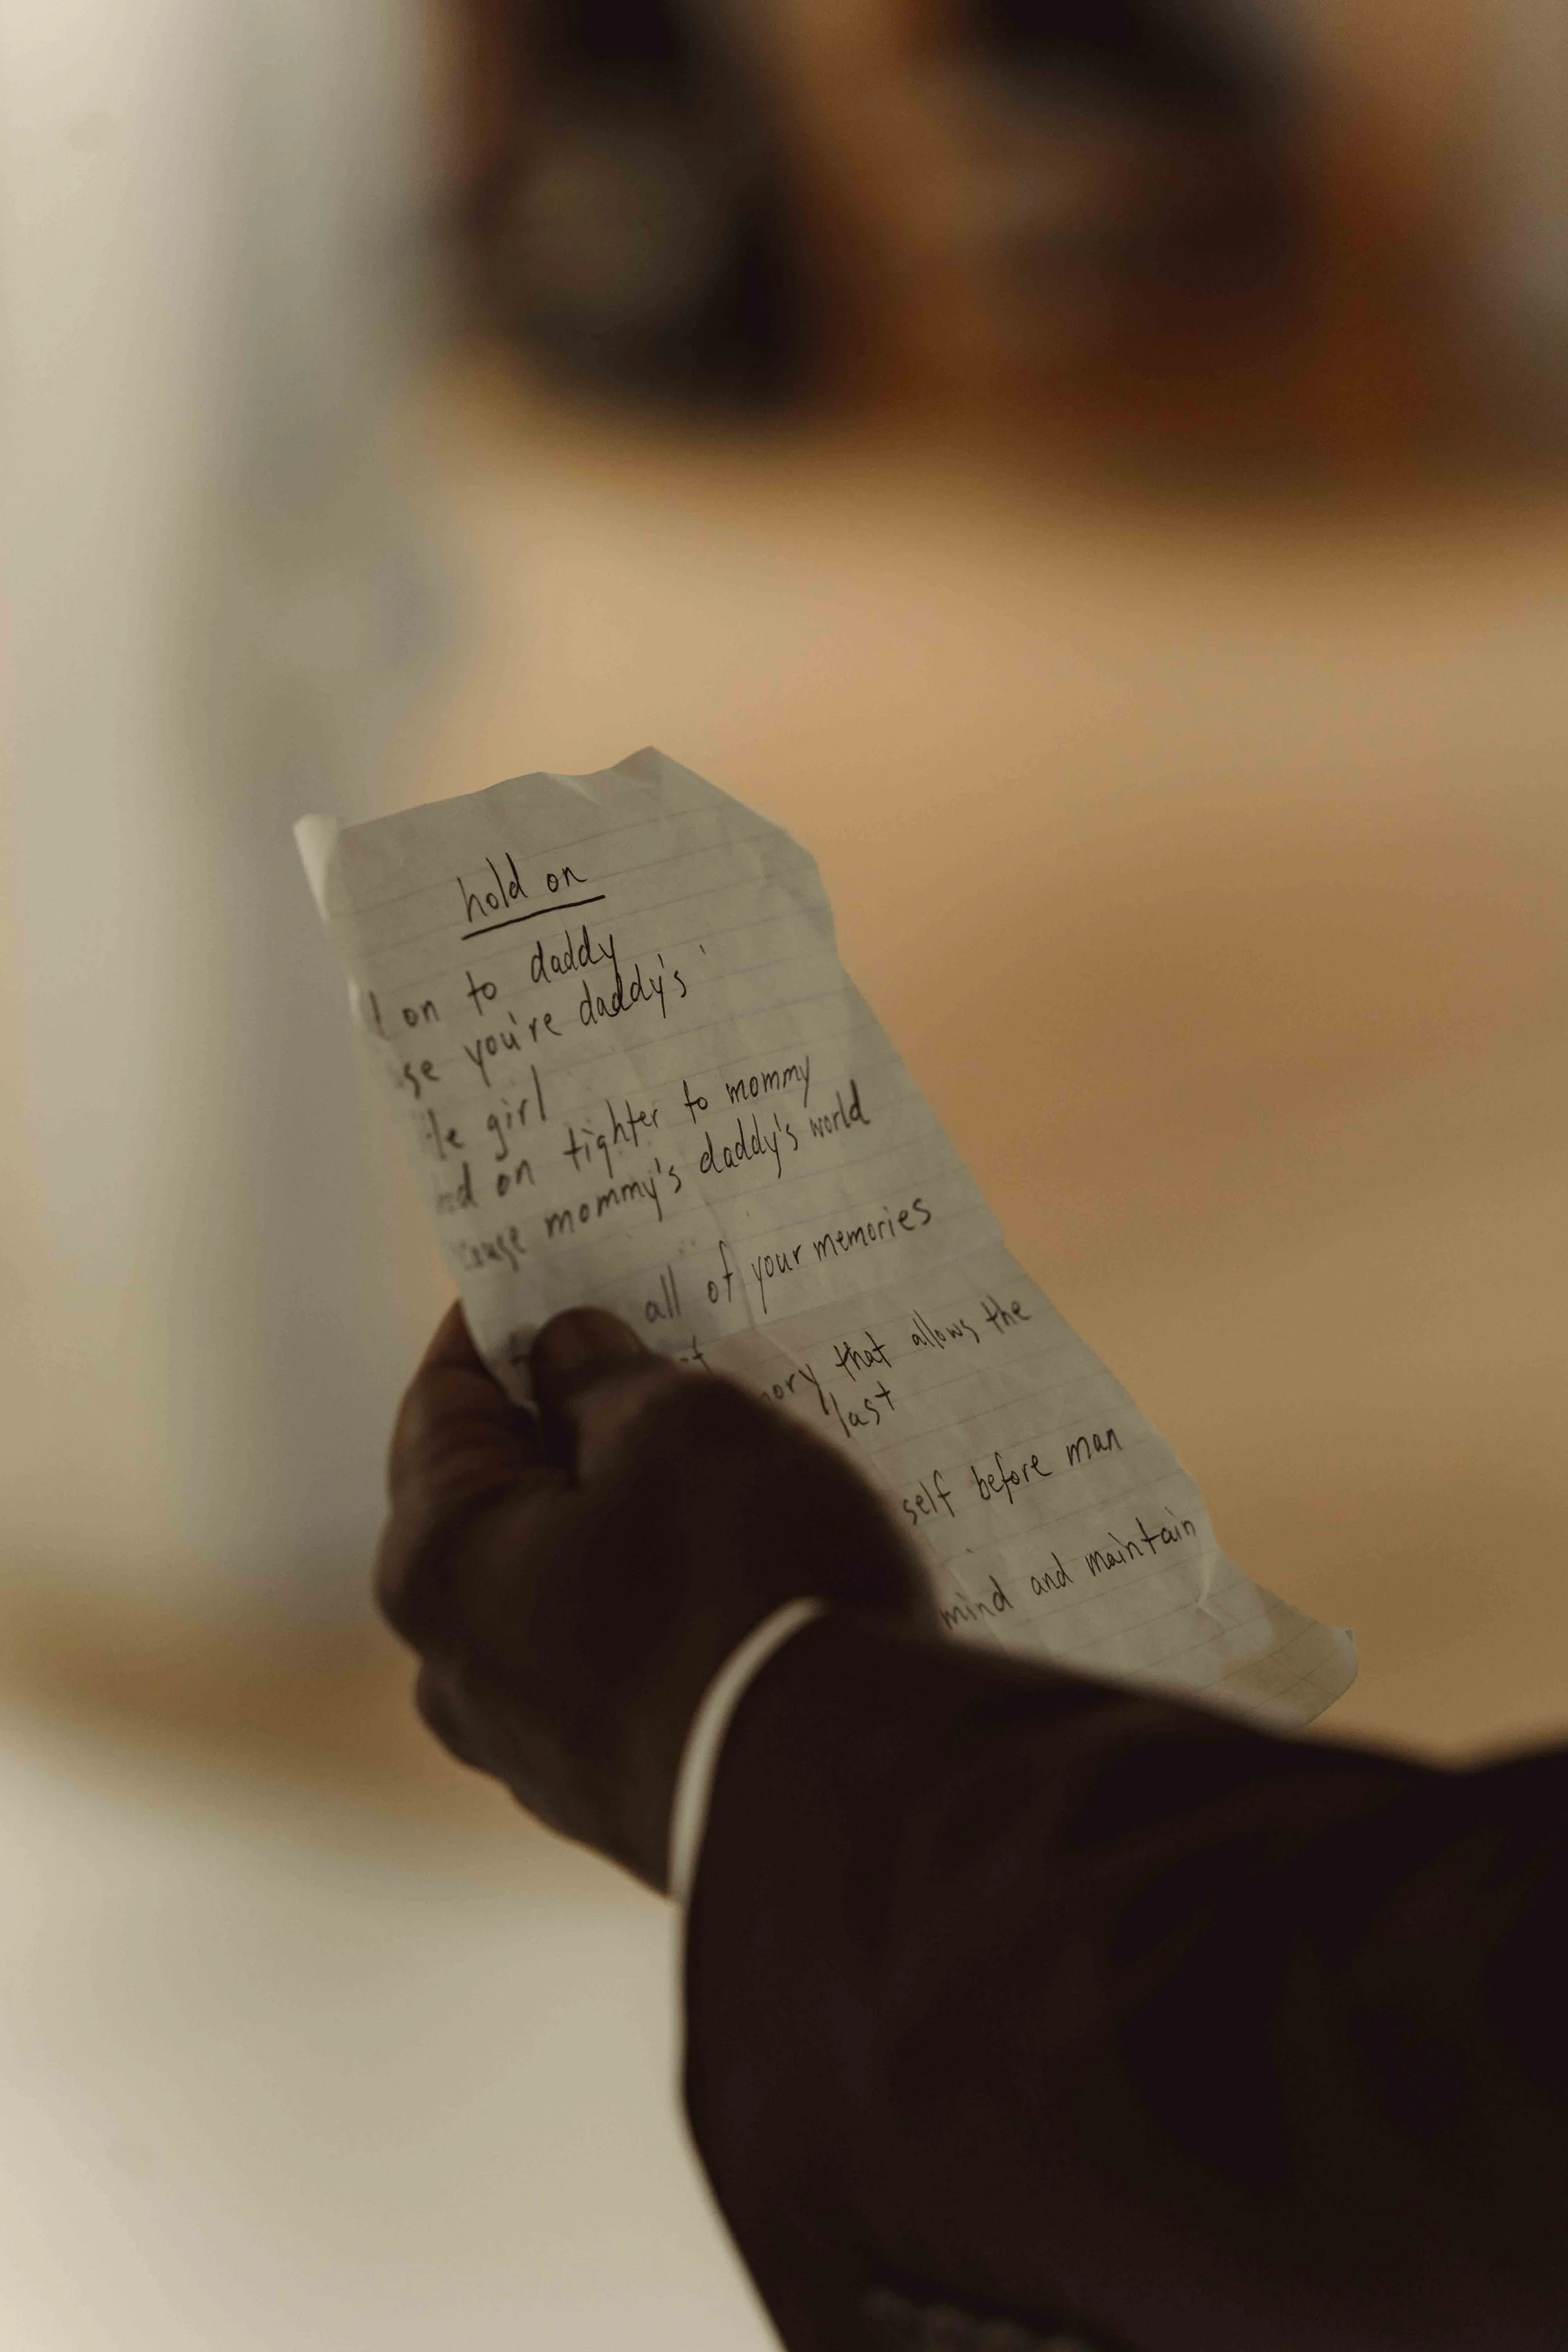 hold on
on to daddy
you're daddy's
girl
on tighter to mommy
mommy's daddy's world
all of your memories
that allows the
last
self before man
mind and maintain